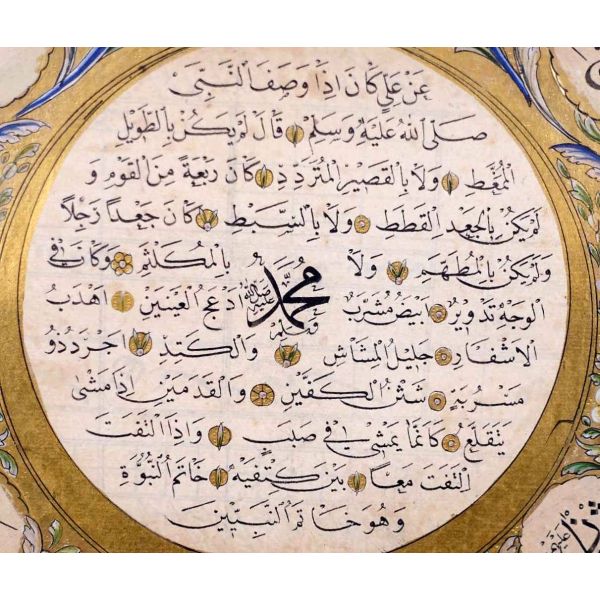 عن علي كان اذا وصف النبي
صلى الله عليه وسلم قال لم يكن بالطويل
الممغط ولا بالقصير المتردد كان ربعة من القوم و
لم يكن بالجعد القطط ولا بالسبط كان جعدا رجلا
ولم يكن بالمطهم ولا محمد صلى الله عليه وسلم بالمكلثم وكان في
الوجه تدوير ابيض مشرب ادعج العينين اهدب
الاشفار جليل المشاش والكتد اجرد ذو
مسربة شثن الكفين والقدمين اذا مشى
يتقلع كانما يمشي في صبب واذا التفت
التفت معا بين كتفيه خاتم النبوة
وهو خاتم النبيين